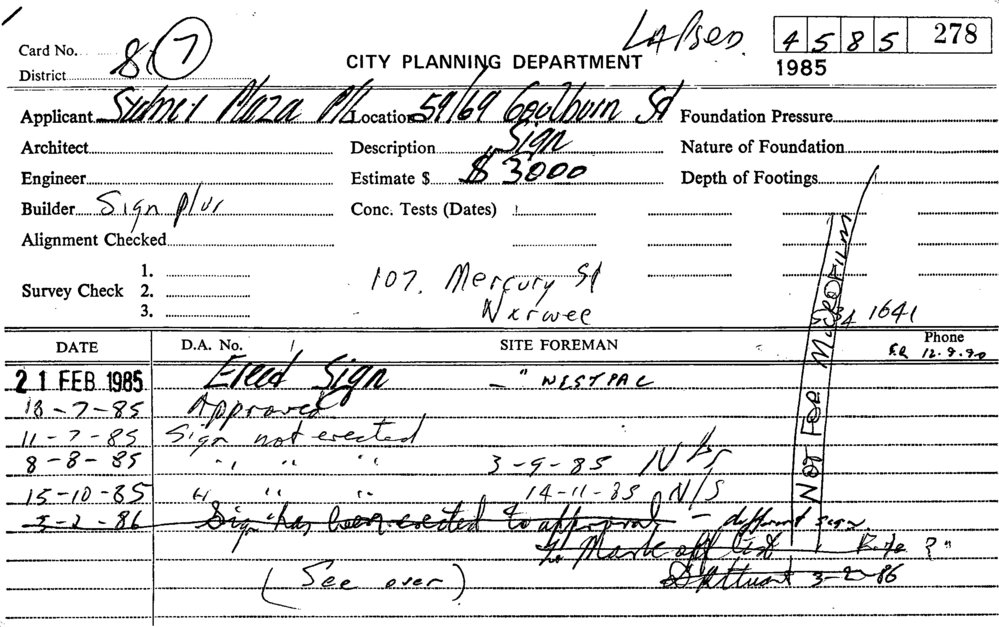 LAPSED. 4 5 8 5 278
Card No. 8 7
District
CITY PLANNING DEPARTMENT
1985
Applicant Sydney Plaza P/L Location 59/69 Goulburn St Foundation Pressure
Architect Description Sign Nature of Foundation
Engineer Estimate $ $ 3000 Depth of Footings
Builder Sign plus Conc. Tests (Dates)
Alignment Checked
1.
Survey Check 2. 107. Mercury St
3. Nxrwee
NOT FOR MICROFILM
1641
DATE D.A. No. SITE FOREMAN Phone
12.9.90
21 FEB 1985 Erect Sign - " WESTPAC
18-7-85 Approved
11-7-85 Sign not erected
8-8-85 " " " 3-9-85 N/S
15-10-85 " " " 14-11-85 N/S
3-2-86 Sign has been erected to approval - different sign.
To Mark off list ? "
3-2-86
(See over)